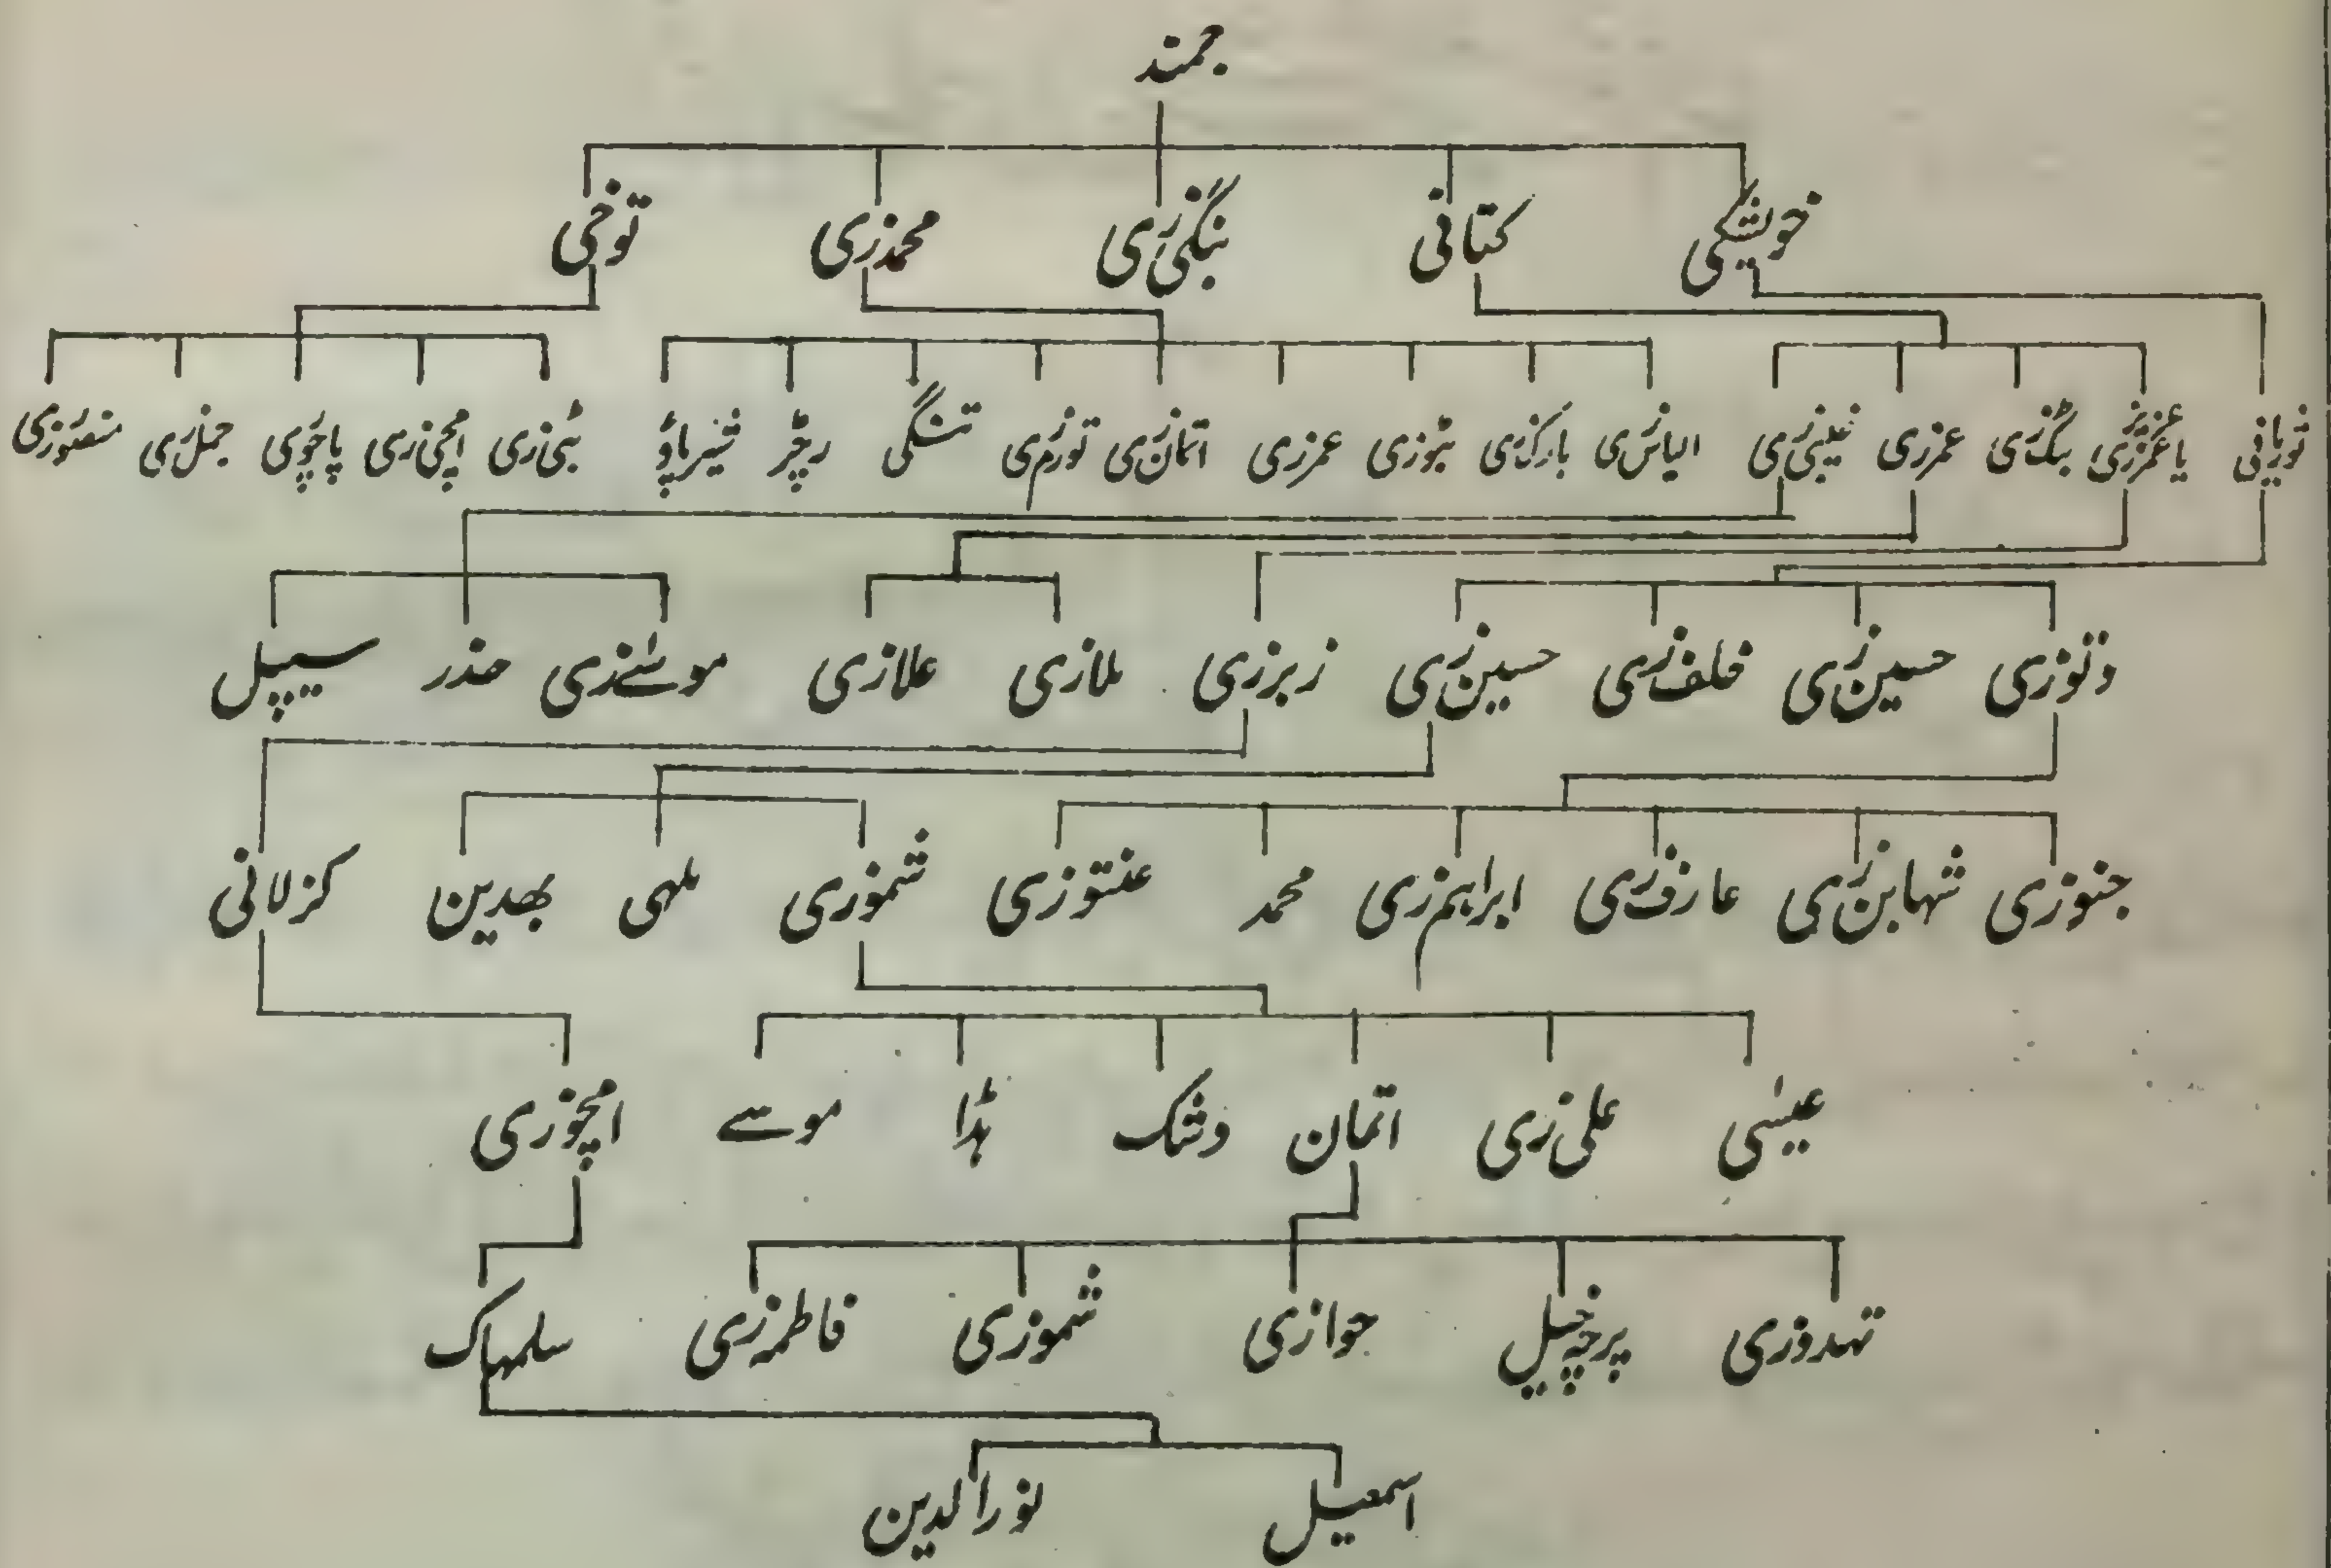 جمند
خویشگی کتانی بنگی زی محمدزی توخی
عزیززی یا عمرزی بگٹ زی عمرزی الیاس زی بارکزی عمرزی اتمان زی تورم زی تنگی رجڑ پاچوی منصورزی
وتوزی حسین زی خلف زی حسین زی زبرزی ملازی علازی موسےٰ زی حذر سیپل
جنوزی شہابن زی عارف زی ابراہیم زی محمد عنتوزی شموزی ملہی بھدین کزلانی
عیسٰی علی زی اتمان وتنک ہڈا موسے اچوزی
تہدوزی پرچہ خیل حوازی شموزی فاطمہ زی سلمہاک
اسمعیل نورالدین